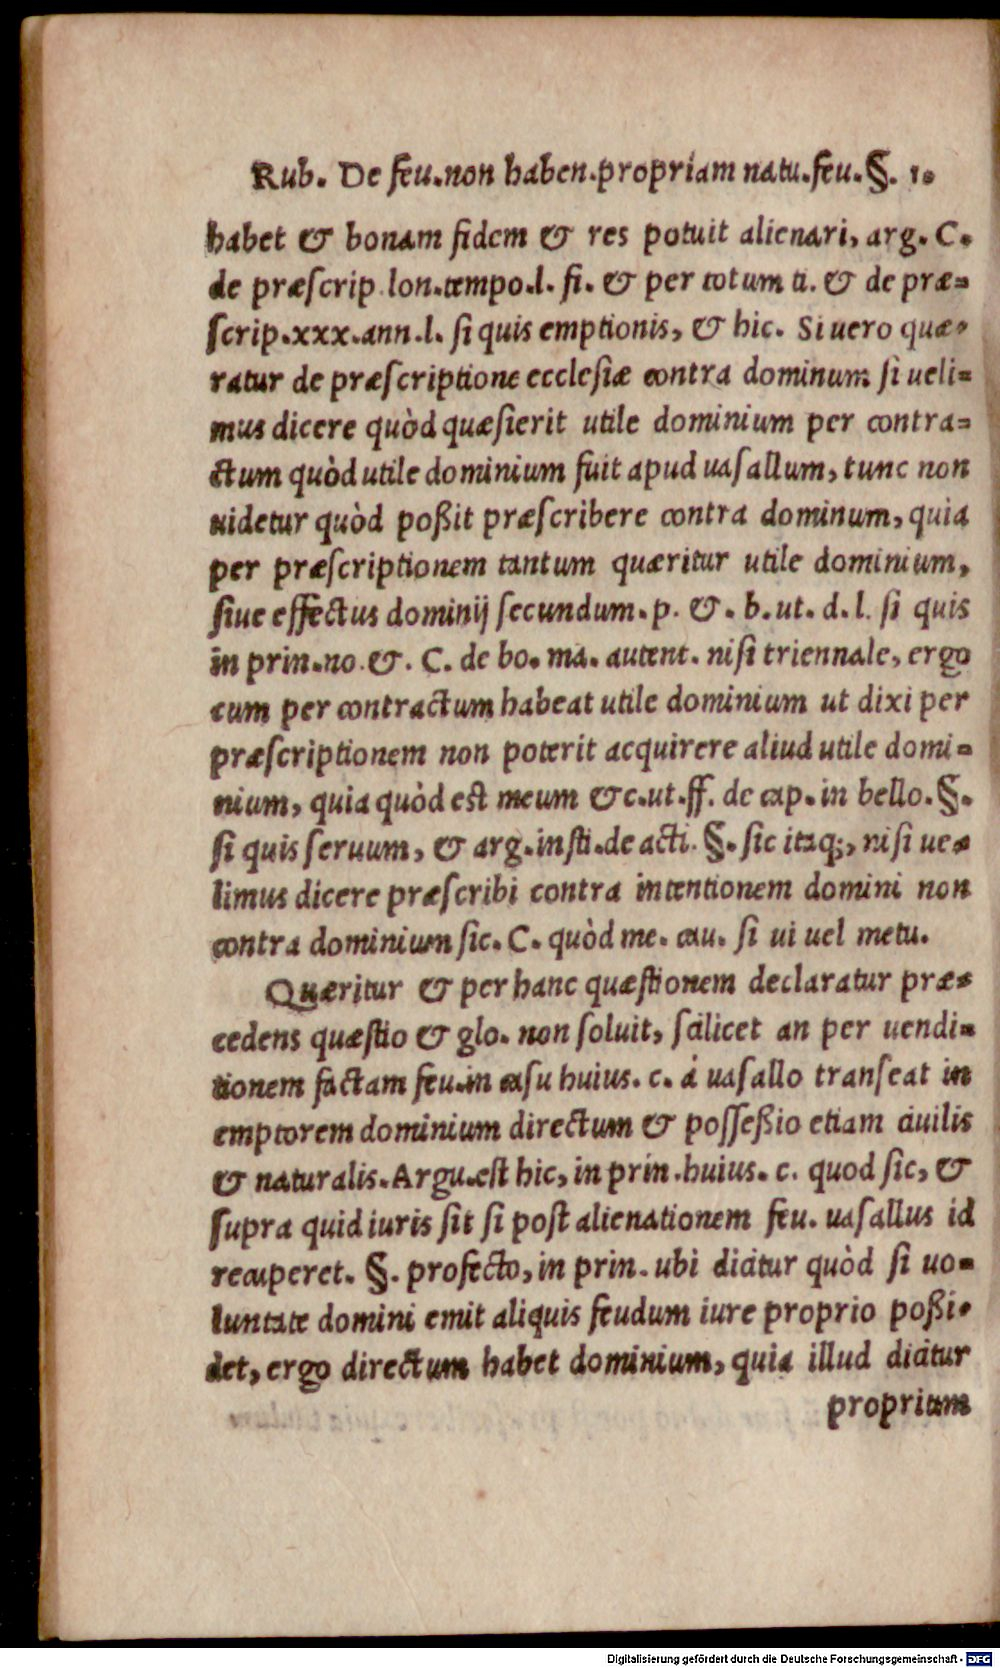 Rub. De feu.non haben.propriam natu.feu.§. 1.
habet & bonam fidem & res potuit alienari, arg. C.
de præscrip lon.tempo.l. fi. & per totum ti. & de præ-
scrip.xxx.ann.l. si quis emptionis, & hic. Si uero quæ-
ratur de præscriptione ecclesiæ contra dominum si ueli-
mus dicere quòd quæsierit utile dominium per contra-
ctum quòd utile dominium fuit apud uasallum, tunc non
uidetur quòd poßit præscribere contra dominum, quia
per præscriptionem tantum quæritur utile dominium,
siue effectus dominij secundum. p. &. b. ut. d. l. si quis
in prin.no. &. C. de bo. ma. autent. nisi triennale, ergo
cum per contractum habeat utile dominium ut dixi per
præscriptionem non poterit acquirere aliud utile domi-
nium, quia quòd est meum &c.ut.ff. de cap. in bello. §.
si quis seruum, & arg.insti.de acti. §. sic itaq;, nisi ue-
limus dicere præscribi contra intentionem domini non
contra dominium sic. C. quòd me. cau. si ui uel metu.
Quæritur & per hanc quæstionem declaratur præ-
cedens quæstio & glo. non soluit, scilicet an per uendi-
tionem factam feu.in casu huius. c. à uasallo transeat in
emptorem dominium directum & posseßio etiam ciuilis
& naturalis. Argu.est hic, in prin.huius. c. quod sic, &
supra quid iuris sit si post alienationem feu. uasallus id
recuperet. §. profecto, in prin. ubi dicitur quòd si uo-
luntate domini emit aliquis feudum iure proprio poßi-
det, ergo directum habet dominium, quia illud dicitur
proprium
Digitalisierung gefördert durch die Deutsche Forschungsgemeinschaft - DFG